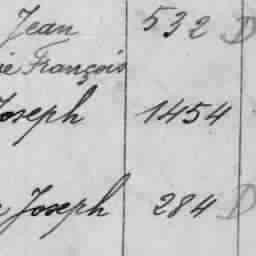 Jean 532 D
ie François
Joseph 1454
e Joseph 284 D